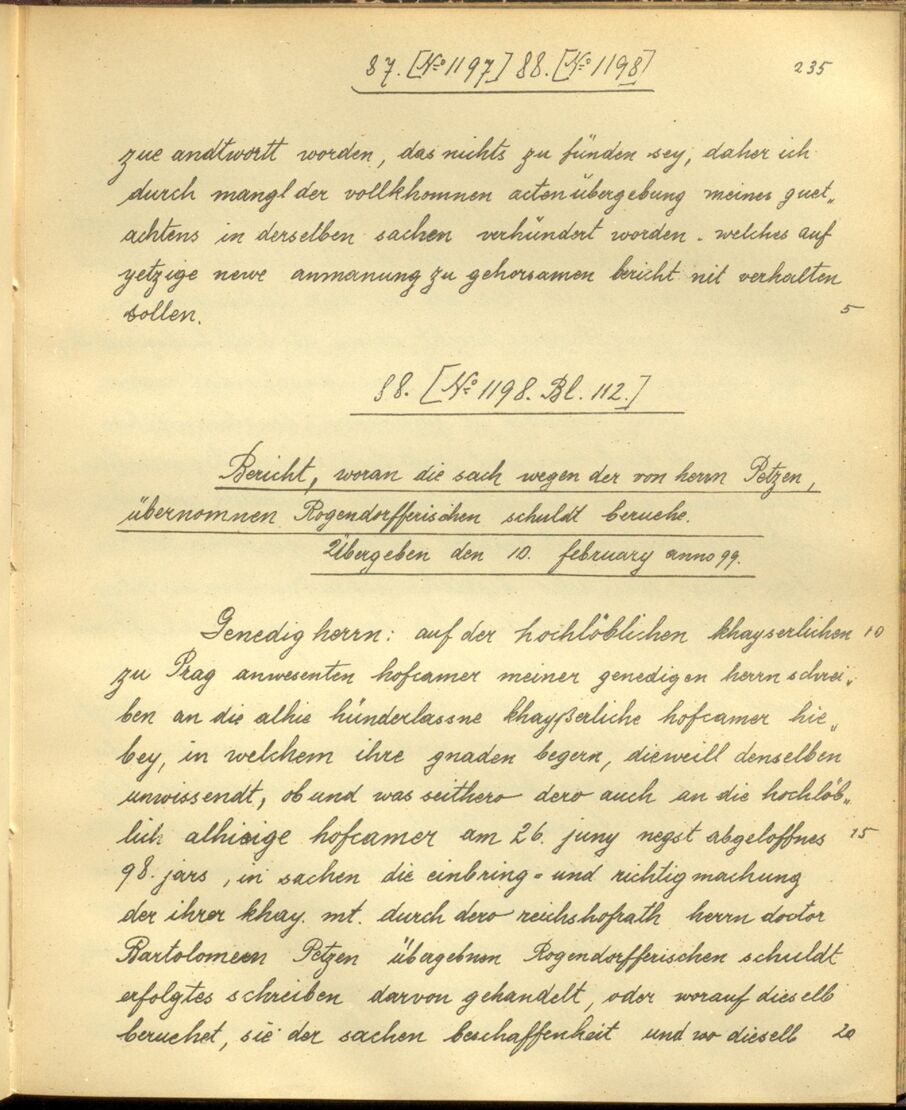 87. [№ 1197] 88. [№ 1198] 235
zue andtwortt worden, das nichts zu fünden sey, daher ich
durch mangl der vollkhomnen actenübergebung meines guet„
achtens in derselben sachen verhündert worden. welches auf
yetzige newe anmanung zu gehorsamen bericht nit verhalten
sollen. 5
88. [№ 1198. Bl. 112.]
Bericht, woran die sach wegen der von herrn Petzen,
übernomnen Rogendorfferischen schuldt beruehe.
Übergeben den 10. february anno 99.
Genedig herrn: auf der hochlöblichen khayserlichen 10
zu Prag anwesenten hofcamer meiner genedigen herrn schrei„
ben an die alhie hünderlassne khayßerliche hofcamer hie„
bey, in welchem ihre gnaden begern, dieweill denselben
unwissendt, ob und was seithero dero auch an die hochlöb„
lich alhieige hofcamer am 26. juny negst abgeloffnes 15
98. jars, in sachen die einbring- und richtigmachung
der ihrer khay. mt. durch dero reichshofrath herrn doctor
Bartolomeen Petzen übergebnen Rogendorfferischen schuldt
erfolgtes schreiben darvon gehandelt, oder worauf dieselb
beruehet, sie der sachen beschaffenheit und wo dieselb 20